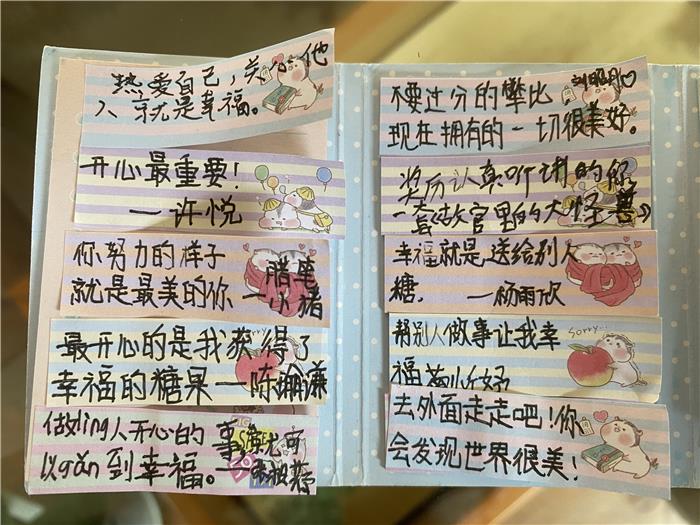 热爱自己，关心他
人就是幸福。
开心最重要！
一许悦
你努力的样子
就是最美的你 一腊笔
小猪
最开心的是我获得了
幸福的糖果一陈
做ling人开心的事就可
以gǎn到幸福。一
不要过分的攀比
现在拥有的一切很美好。
奖历认真听讲的你
一套《故宫里的大怪兽》
幸福就是送给别人
糖. 一杨雨欣
帮别人做事让我幸
福
去外面走走吧！你
会发现世界很美！
Sorry...